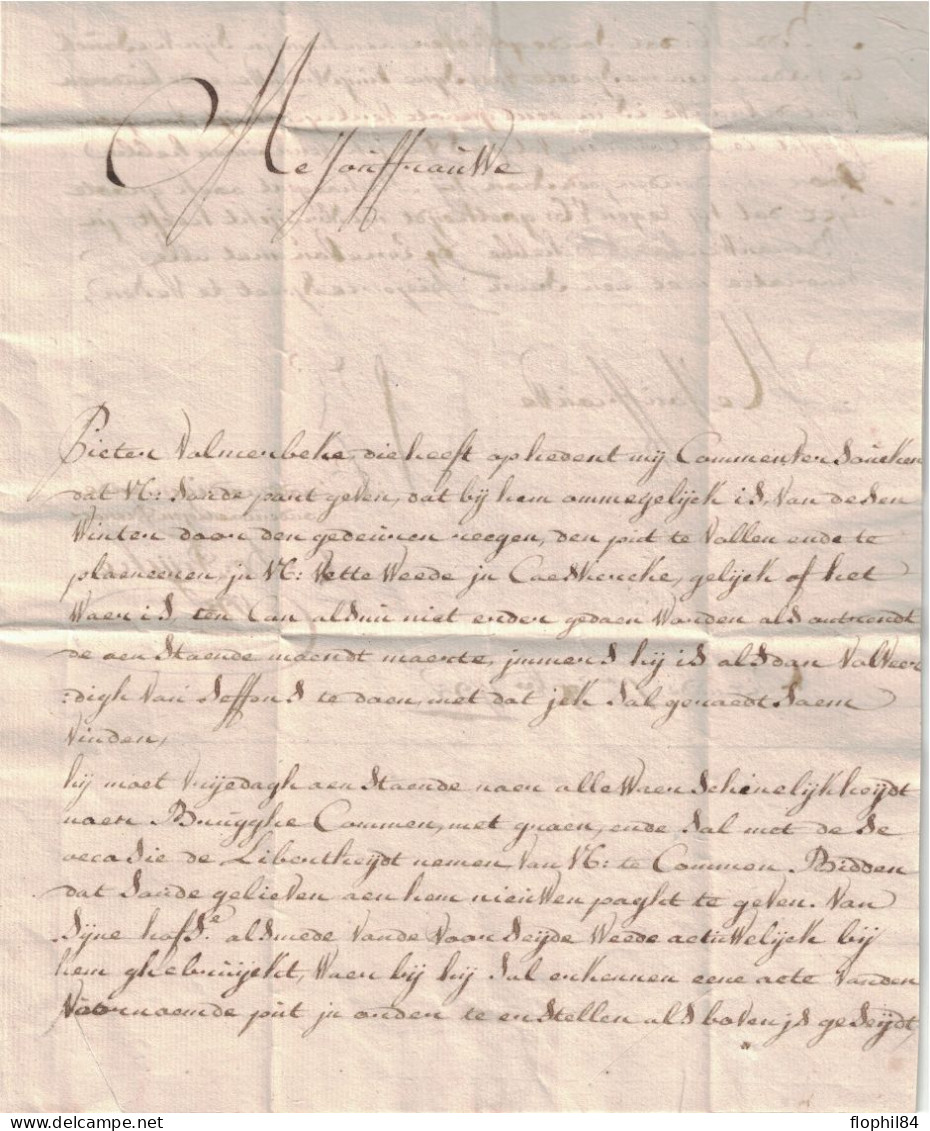 MeJouffrauwe
Pieter Valmerbeke, die heeft op hedent mij Commen versoucken
dat Vl: Soude part geven, dat bij hem ommegelijck is, van desen
Winter door den gedeuren reegen, den put te Vullen ende te
plaeneeren, in Vl: Vette Weede in Caeskercke, gelijck of het
Waer is, ten Can alsnu niet eerder gedaen Worden als ontrendt
de aenstaende maendt maerte, immers hij is alsdan Valveer
:digh van Seffens te doen, met dat ick Sal geraedtsaem
Vinden,
hij moet Vrijedagh aenstaende naer alle Waerschinelijkheijdt
naer Brugghe Commen, met graen, ende Sal met dese
occasie de Liberthejdt nemen van Vl: te Commen Bidden
dat Soude gelieven aen hem nieuwen paght te geven. Van
Sijne hofs.e alsmede vande voorseijde Weede actuwelijck bij
hem ghebruijckt, Waer bij hij Sal erkennen eene acte vanden
Voornoemde put in order te er stellen als boven is geseijdt,
flophil84